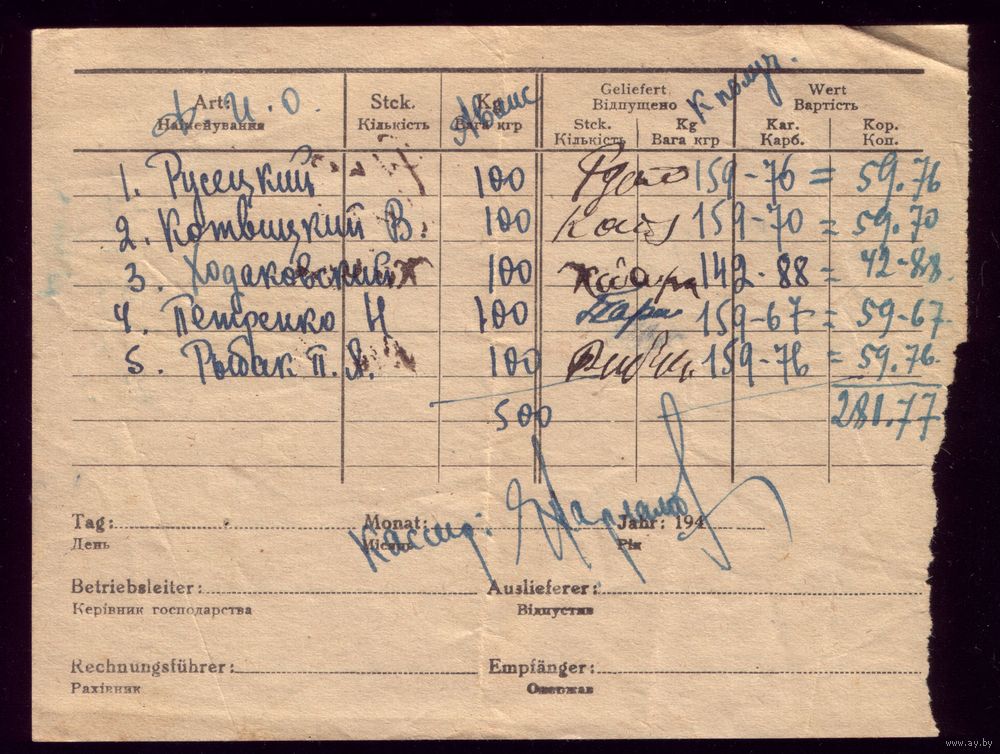 Geliefert Wert
Art. Stck. Kg Відпущено Вартість
Ф. И. О. Аванс К получ.
Найменування Кількість Вага кгр Stck. Kg Kar. Kop.
Кількість Вага кгр Карб. Коп.
1. Русецкий 100 159-76 = 59.76
2. Котвицкий В. 100 159-70 = 59.70
3. Ходаковский 100 142-88 = 42-88.
4. Петренко Н 100 159-67 = 59-67.
5. Рыбак П. А. 100 159-76 = 59.76.
500 281.77
Кассир:
Tag: Monat: Jahr: 194
День Місяць Рік
Betriebsleiter: Auslieferer:
Керівник господарства Відпустив
Rechnungsführer: Empfänger:
Рахівник Одержав
www.ay.by